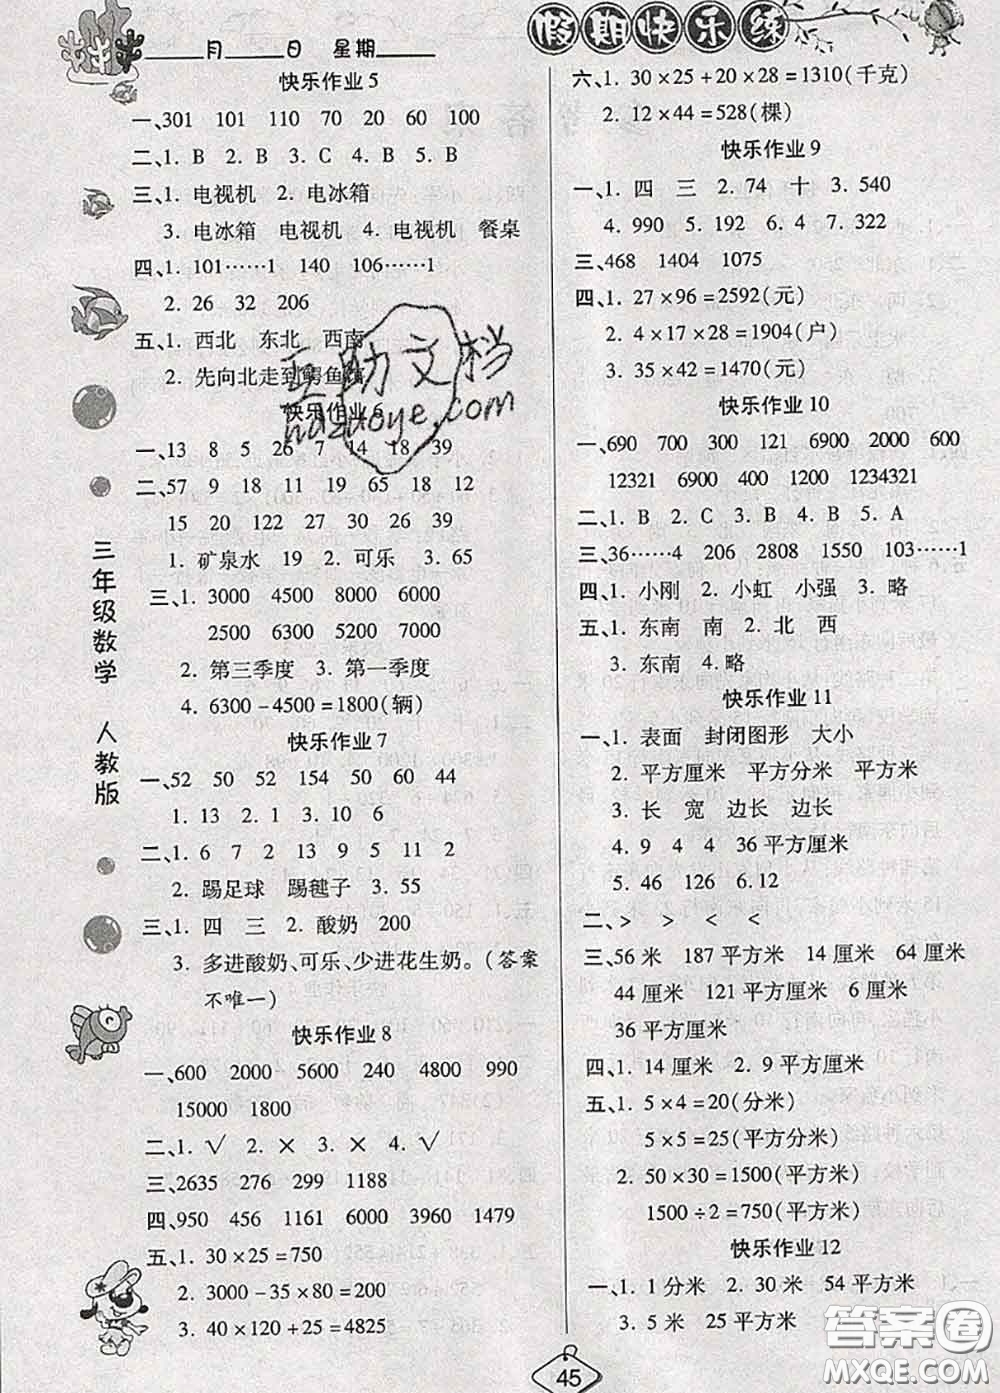 ____月____日 星期____
假期快乐练
快乐作业 5
一、301 101 110 70 20 60 100
二、1. B 2. B 3. B 4. B 5. B
三、1. 电视机 2. 电冰箱
3. 电冰箱 电视机 4. 电视机 餐桌
四、1. 101……1 140 106……1
2. 26 32 206
五、1. 西北 东北 西南
2. 先向北走到鳄鱼馆
快乐作业 6
一、13 8 5 26 7 14 18 39
二、57 9 18 11 19 35 18 12
15 20 122 27 30 21 39
1. 矿泉水 19 2. 可乐 3. 65
三、1. 3000 4500 8000 6000
2500 6300 5200 7000
2. 第三季度 3. 第一季度
4. 6300－4500＝1800(辆)
快乐作业 7
一、52 50 52 154 50 60 44
1. 13 2. 1 3. 10 4. 6
二、1. 6 7 2 13 9 5 11 2
2. 踢足球 踢毽子 3. 35
三、1. 四 三 2. 酸奶 200
3. 多进酸奶、可乐、少进花生奶。(答案
不唯一)
快乐作业 8
一、600 2000 5600 240 4800 990
15000 1800
二、1. √ 2. × 3. × 4. √
三、2635 276 299 1888
四、950 456 1161 6000 3960 1479
五、1. 30×25＝750
2. 3000－35×80＝200
3. 40×120＋25＝4825
六、1. 30×25＋20×28＝1310(千克)
2. 12×44＝528(棵)
快乐作业 9
一、1. 四 三 2. 74 十 3. 540
4. 990 5. 192 6. 4 7. 322
三、468 1404 1075
四、1. 27×96＝2592(元)
2. 4×17×28＝1904(户)
3. 35×42＝1470(元)
快乐作业 10
一、690 700 300 121 6900 2000 600
12321 6900 400 1200 1234321
二、1. B 2. C 3. B 4. B 5. A
三、36……4 206 2808 1550 103……1
四、1. 小刚 2. 小虹 小强 3. 略
五、1. 东南 南 2. 北 西
3. 东南 4. 略
快乐作业 11
一、1. 表面 封闭图形 大小
2. 平方厘米 平方分米 平方米
3. 长 宽 边长 边长
4. 9 4 4 36 平方厘米
5. 46 126 6. 12
二、> > < <
三、56 米 187 平方米 14 厘米 64 厘米
44 厘米 121 平方厘米 6 厘米
36 平方厘米
四、1. 14 厘米 2. 9 平方厘米
五、1. 5×4＝20(分米)
5×5＝25(平方分米)
2. 50×30＝1500(平方米)
1500÷2＝750(平方米)
快乐作业 12
一、1. 1 分米 2. 30 米 54 平方米
3. 5 分米 25 平方分米
三年级数学 人教版
45
互助文档
huzuoye.com
答案圈
MXQE.COM